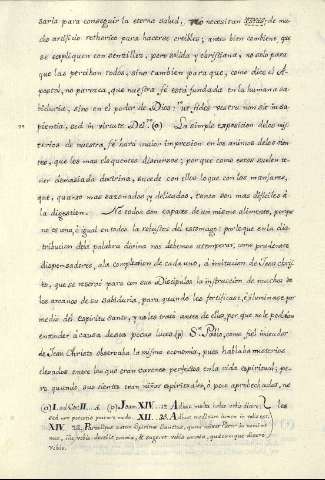 sarla para conseguir la eterna salud, no necesitan de mu-
cho artificio rethorico para hacerse creibles; antes bien conviene que
se expliquen con sencillez, pero solida y christiana, no solo para
que las perciban todos, sino tambien para que, como dice el A-
postol, no parezca, que nuestra fé está fundada en la humana sa-
biduria, sino en el poder de Dios: ut fides vestra non sit in sa-
pientia, sed in virtute Dei. (o) La simple exposicion de los mis-
terios de nuestra fé hará maior impresion en los animos de los oien-
tes, que los mas eloquentes discursos; porque como estos suelen te-
ner demasiada doctrina, sucede con ellos lo que con los manjares,
que, quanto mas sazonados y delicados, tanto son mas dificiles á
la digestion. No todos son capaces de un mismo alimento, porque
no es una, é igual en todos la robustez del estomago: por lo que en la dis-
tribucion de la palabra divina nos debemos atemperar, como prudentes
dispensadores, a la complexion de cada uno, á imitacion de Jesu Chris-
to, que se reservó para con sus Discipulos la instruccion de muchos de
los arcanos de su Sabiduria, para quando los fortificase, é iluminase por
medio del Espiritu Santo, y no les trató antes de ellos, por que no le podian
entender á causa de sus pocas luces (p) Sn. Pablo, como fiel imitador
de Jesu Christo observaba la misma economia, pues hablaba misterios
elevados entre los que eran varones perfectos en la vida espiritual; pe-
ro quando sus oientes eran niños espirituales, ó poco aprobechados, no
(o) I. ad Cor. II. 5. (p) Joan. XIV. Adhuc multa habeo vobis dicere: les
sed non potestis portare modo. XII. 35. Adhuc modicum lumen in vobis est.
XIV. 26. Paraclitus autem Spiritus Sanctus, quem mittet Pater in nomine
meo, ille vobis docebit omnia, & suggeret vobis omnia, quæcumque dixero
vobis.